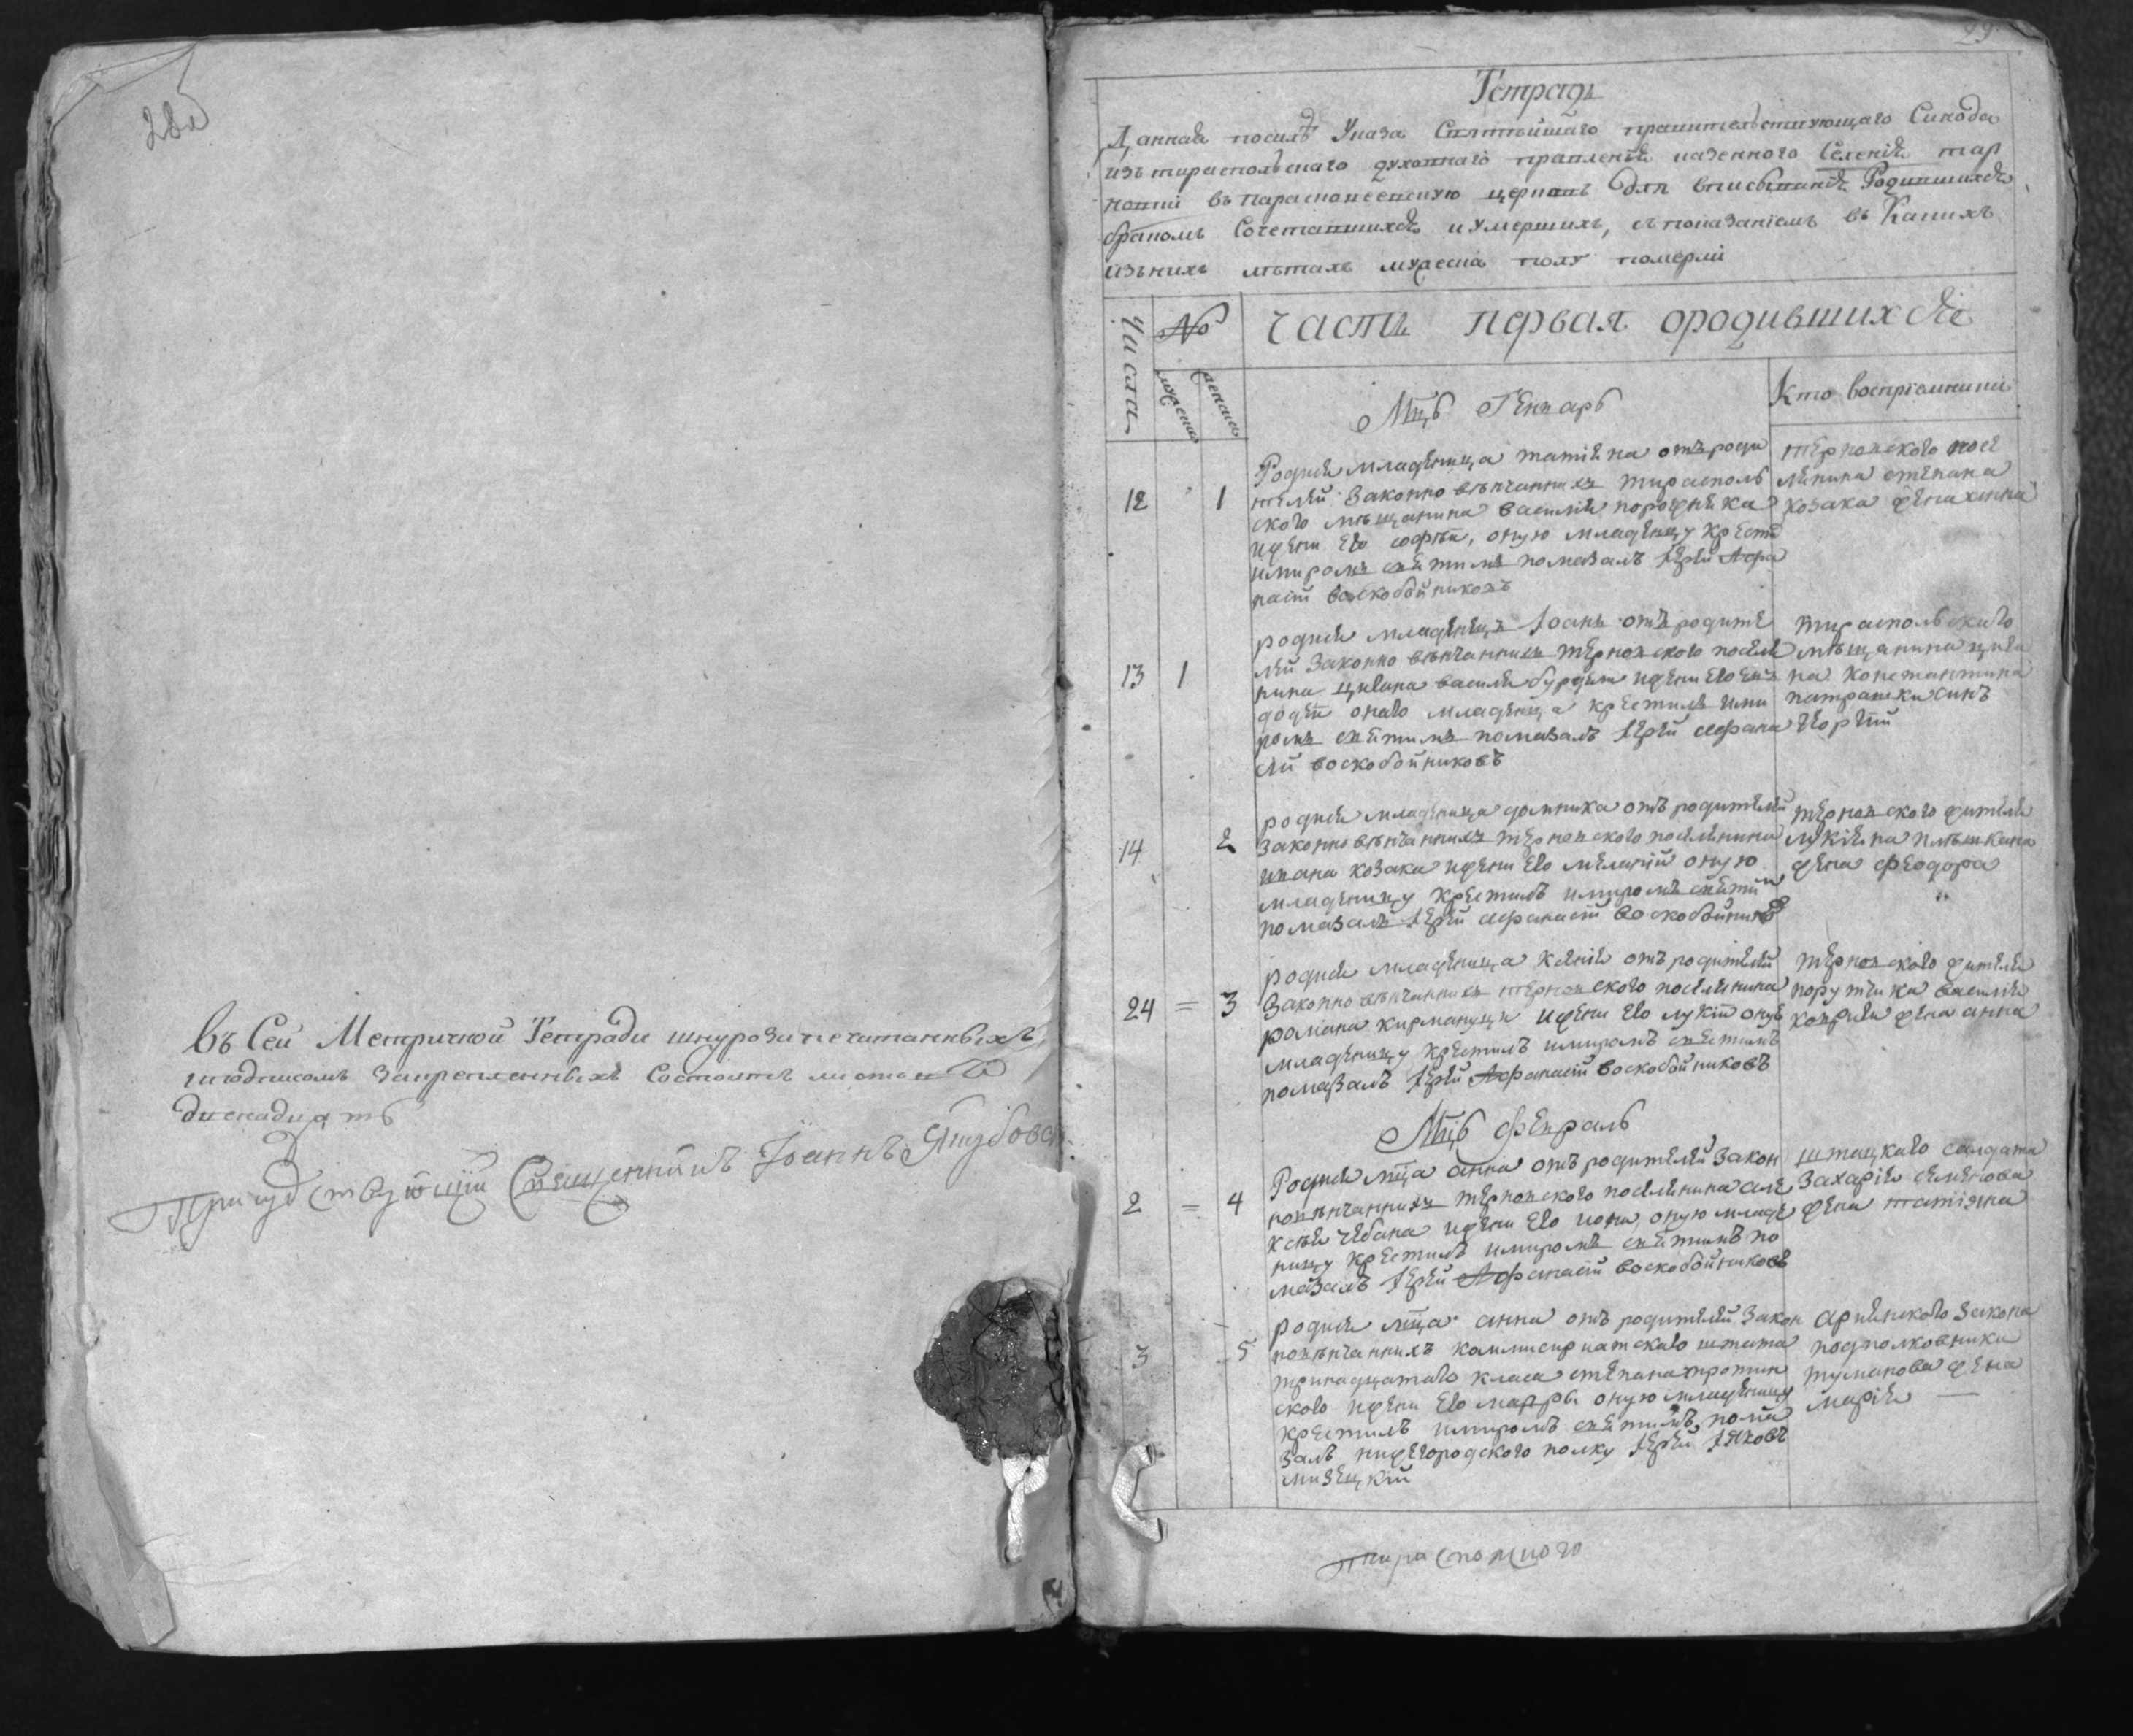 28об
Въ Сей Метричной Тетради шнурозапечатанныхъ
иподписомъ Закрепленныхъ Состоитъ листовъ
двенадцать
Присудствующій Священникъ Іоаннъ Якубовс
29
Тетрадь
Данная посилѣ Указа Святѣйшаго правительствующаго Синода
изътираспольскаго духовнаго правленія казенного Селенія тер
новки въпараскевеевскую церковь для вписыванія Родившихся
бракомъ Сочетавшихся иУмершихъ, съпоказаніемъ въ Какихъ
изънихъ лѣтахъ мужеска полу померли
Числа
№
часть первая ородившихся
мужеска
женска
Мцъ Генварь
Кто воспріемники
12
1
Родися младеница татіяна отъроди
телей Законно вѣнчаннихъ тирасполь
ского мѣщанина василія порожнѣка
ижени Его софѣи, оную младеницу крести
имиромъ святимъ помазалъ Іерей Афа
насій воскобойниковъ
терновского посе
лянина стѣпана
козака жена ханна
13
1
родися младенецъ Іоанъ отъродите
лей Законно вѣнчаннихъ терновского поселя
нина цигана василя ижени Его Ев
докіи онаго младенца крестилъ ими
ромъ святимъ помазалъ Іерей Афана
сій воскобойниковъ
тираспольскаго
мѣщанина цига
на константина
синъ
георгій
14
2
родися младеница домника отъ родителей
Законно вѣнчаннихъ терновского поселянина
ивана козака ижени Его меланіи оную
младеницу крестилъ имиромъ святим
помазалъ Іерей Афанасій воскобойников
терновского жителя
лукіяна плѣшкана
жена феодора
24
=
3
родися младеница ксенія отъ родителей
Законно вѣнчаннихъ терновского поселянина
романа ижени Его лукіи оную
младеницу крестилъ имиромъ святимъ
помазалъ Іерей Афанасій воскобойниковъ
терновского жителя
поручика василія
жена анна
Мцъ февраль
2
=
4
Родися мца анна отъ родителей Закон
новѣнчаннихъ терновского поселянина але
ксѣя чебана ижени Его оную младе
ницу крестилъ имиромъ святимъ по
мазалъ Іерей Афанасій воскобойниковъ
штацкаго салдата
Захарія семенова
жена татіяна
3
5
родися мца анна отъ родителей Закон
новѣнчаннихъ каммисиріатскаго штата
тринадцатаго класа стѣпана
ского ижени Его мавры оную младеницу
крестилъ имиромъ святимъ пома
залъ нижегородского полку Іерей Іяковъ
мизецкій
арменского Закона
подполковника
туманова жена
марія —
тираспольского